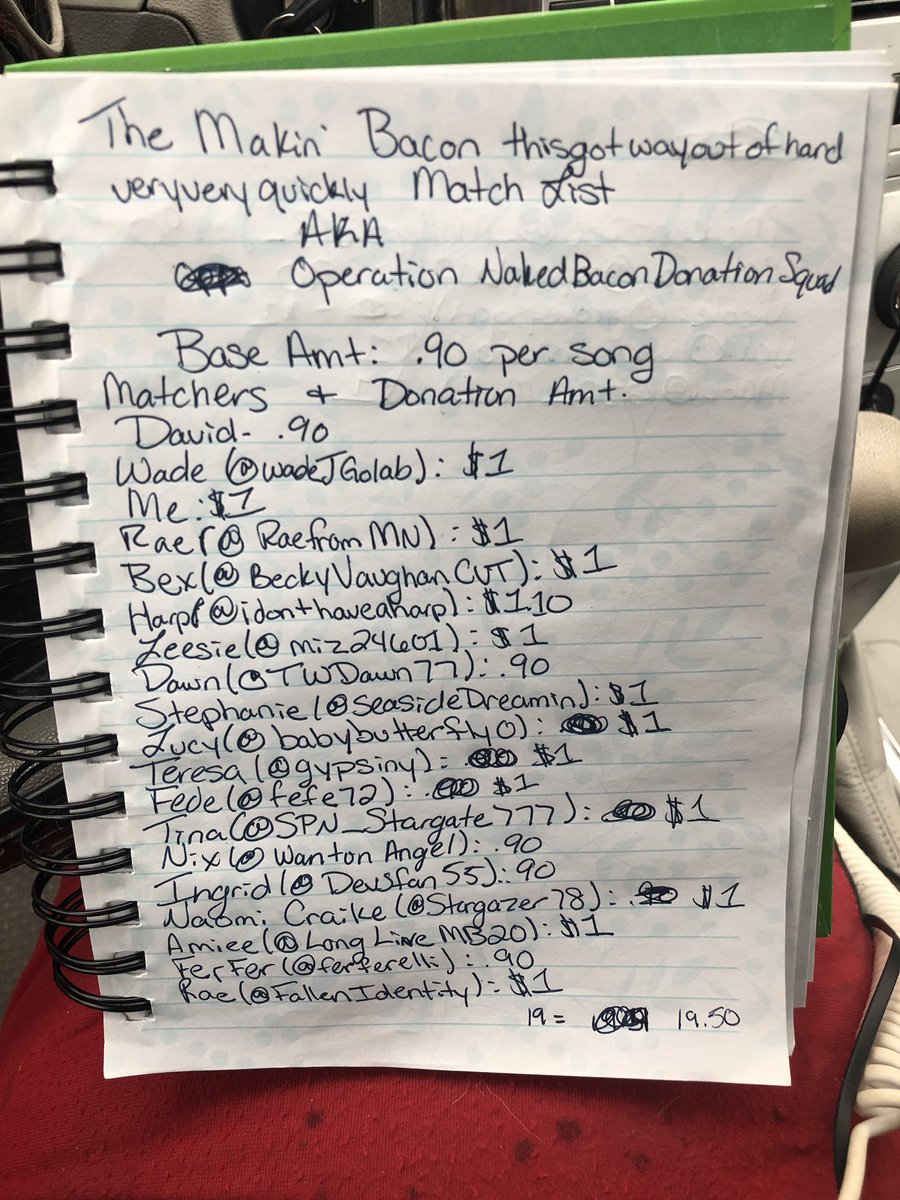 The Makin' Bacon thisgotwayoutofhand
veryveryquickly Match List
AKA
Operation NakedBaconDonationSquad
Base Amt: .90 per song
Matchers + Donation Amt.
David- .90
Wade (@wadeJGolab): $1
Me: $1
Rae (@RaefromMN): $1
Bex (@BeckyVaughanCVT): $1
Harp (@idonthaveaharp): $1.10
Leesie (@miz24601): $1
Dawn (@TWDawn77): .90
Stephanie (@SeasideDreamin): $1
Lucy (@babybutterfly0): $1
Teresa (@gypsiny): $1
Fede (@fefe72): $1
Tina (@SPN_Stargate777): $1
Nix (@WantonAngel): .90
Ingrid (@Devsfan55): .90
Naomi Craike (@Stargazer78): $1
Amiee (@LongLiveMB20): $1
FerFer (@ferferelli): .90
Rae (@FallenIdentity): $1
19 = 19.50